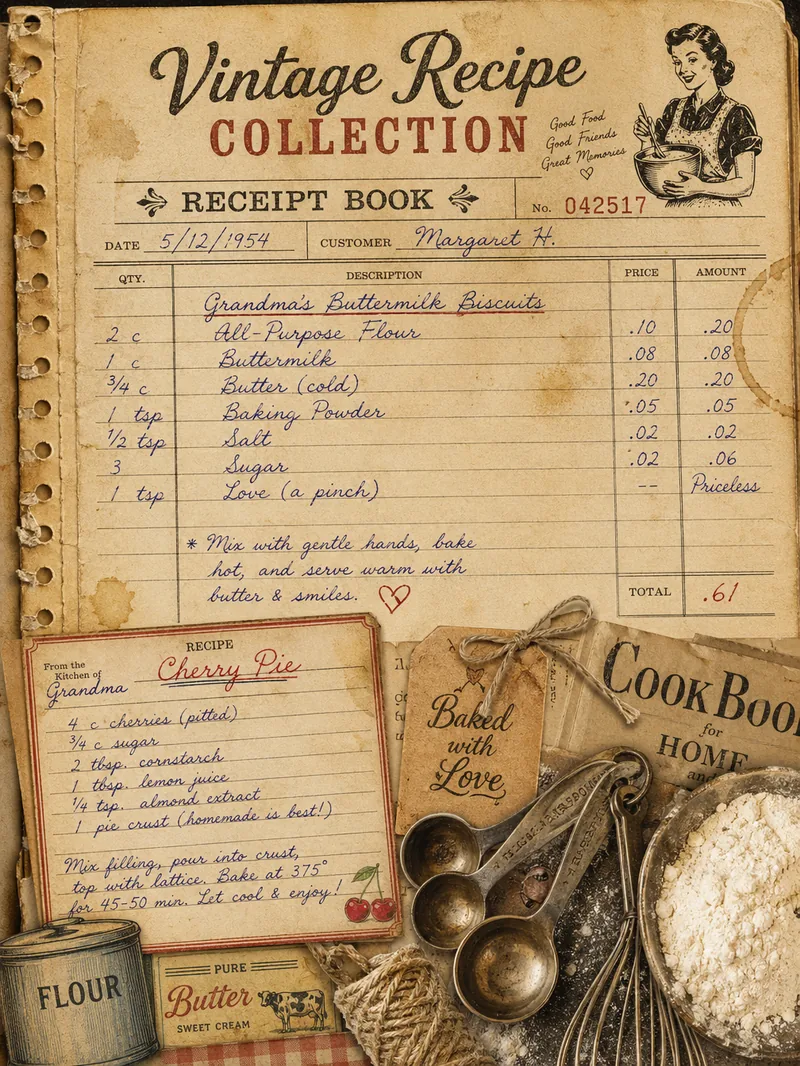 Vintage Recipe
COLLECTION
Good Food
Good Friends
Great Memories
RECEIPT BOOK
No. 042517
DATE 5/12/1954 CUSTOMER Margaret H.
QTY. DESCRIPTION PRICE AMOUNT
Grandma's Buttermilk Biscuits
2 c All-Purpose Flour .10 .20
1 c Buttermilk .08 .08
3/4 c Butter (cold) .20 .20
1 tsp Baking Powder .05 .05
1/2 tsp Salt .02 .02
3 Sugar .02 .06
1 tsp Love (a pinch) -- Priceless
* Mix with gentle hands, bake
hot, and serve warm with
butter & smiles.
TOTAL .61
RECIPE
From the
Kitchen of
Grandma
Cherry Pie
4 c cherries (pitted)
3/4 c sugar
2 tbsp. cornstarch
1 tbsp. lemon juice
1/4 tsp. almond extract
1 pie crust (homemade is best!)
Mix filling, pour into crust,
top with lattice. Bake at 375°
for 45-50 min. Let cool & enjoy!
Baked
with
Love
COOK BOO
for
HOME
and
FLOUR
PURE
Butter
SWEET CREAM